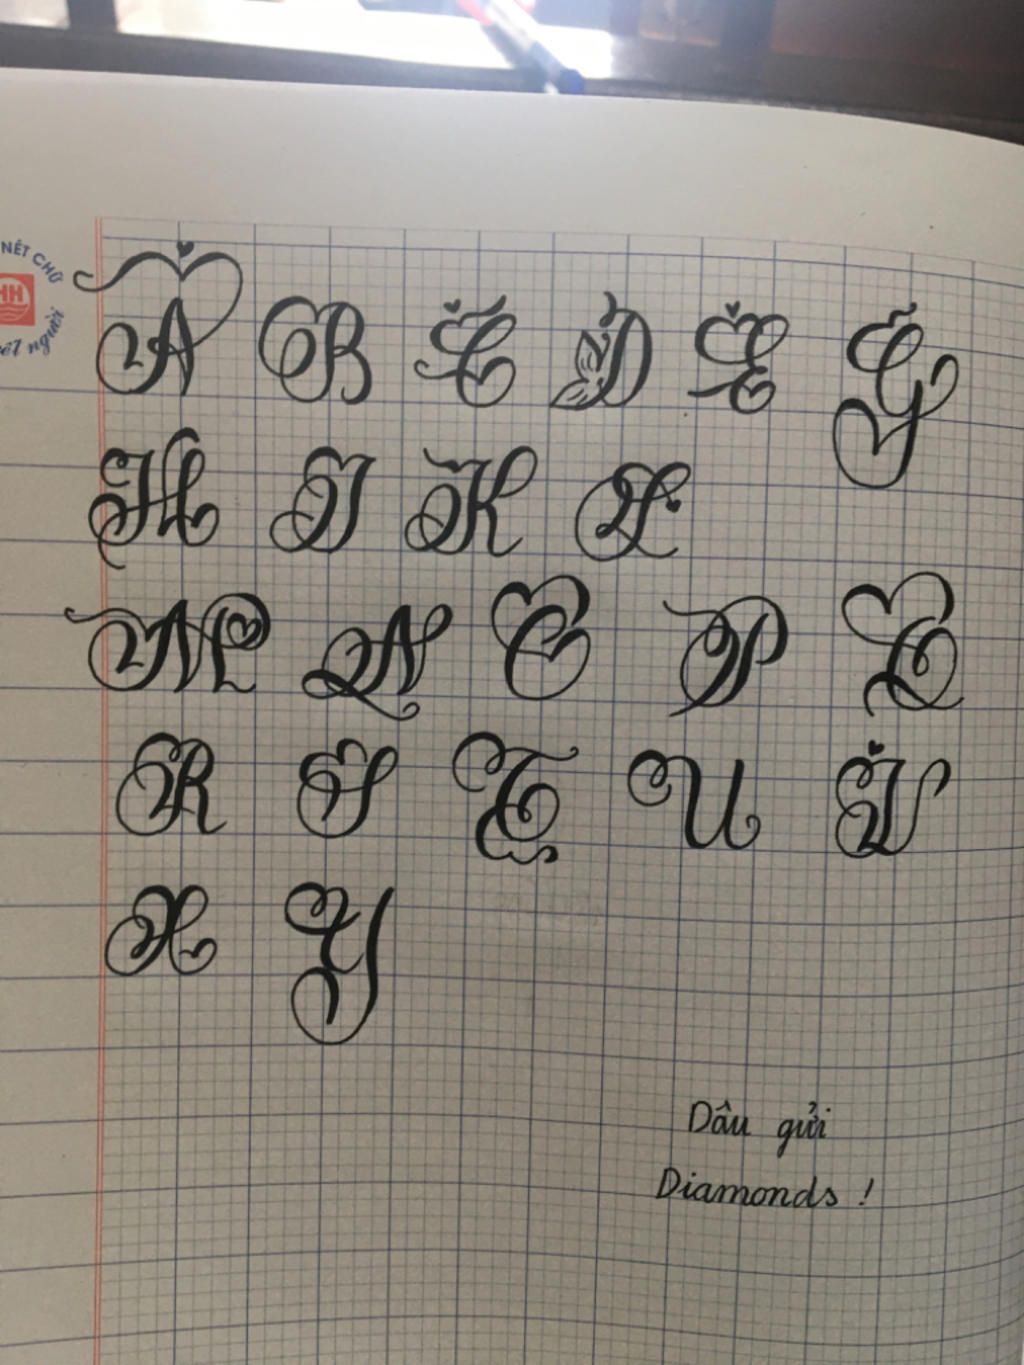 NÉT CHỮ
HH
nết người
A B C D E G
H I K L
M N O P Q
R S T U V
X Y
Dâu gửi
Diamonds !